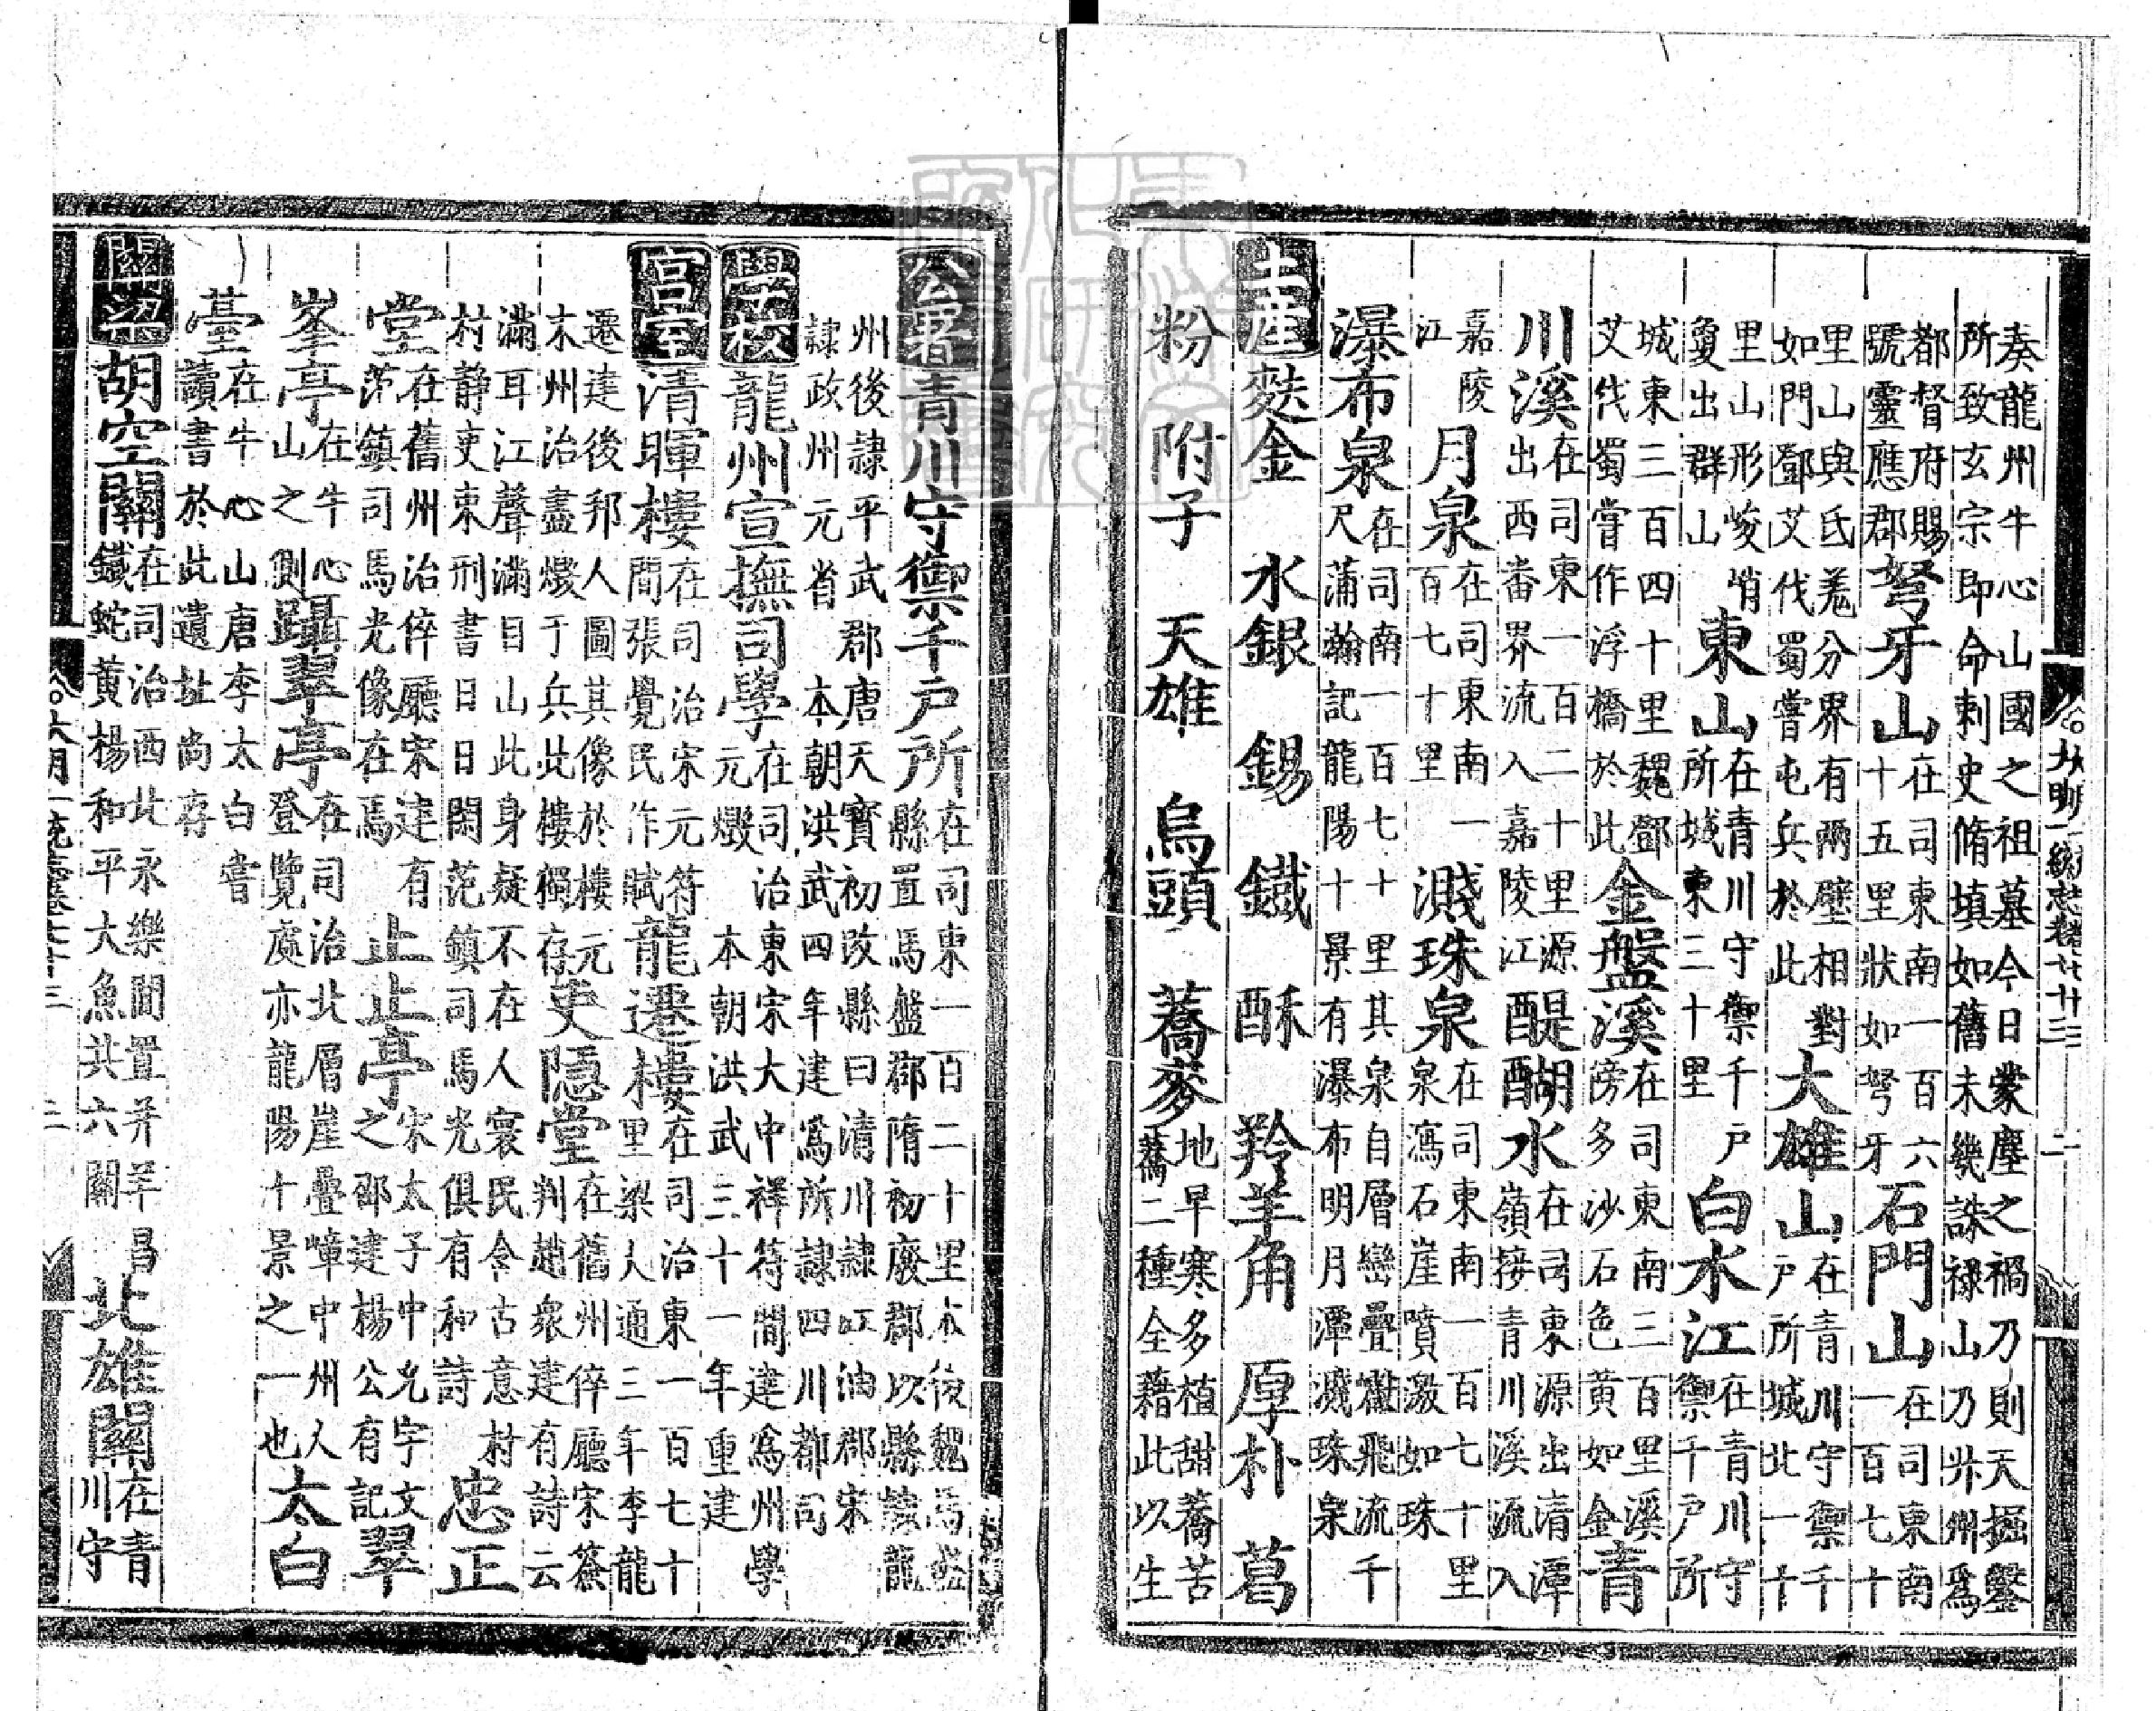 大明一統志卷七十三 二
奏龍州牛心山國之祖墓今日蒙塵之禍乃則天掘鑿
所致玄宗即命刺史脩填如舊未幾誅祿山乃升州爲
都督府賜
號靈應郡
弩牙山
在司東南一百六
十五里狀如弩牙
石門山
在司東南
一百七十
里山與氐羌分界有兩壁相對
如門鄧艾伐蜀嘗屯兵於此
大雄山
在青川守禦千
戶所城北一十
里山形峻峭
夐出群山
東山
在青川守禦千戶
所城東三十里
白水江
在青川守
禦千戶所
城東三百四十里魏鄧
艾伐蜀嘗作浮橋於此
金盤溪
在司東南三百里溪
傍多沙石色黃如金
青
川溪
在司東一百二十里源
出西番界流入嘉陵江
醍醐水
在司東源出清潭
嶺接青川溪流入
嘉陵
江
月泉
在司東南一
百七十里
濺珠泉
在司東南一百七十里
泉瀉石崖噴激如珠
瀑布泉
在司南一百七十里其泉自層巒疊巘飛流千
尺蒲瀚記龍陽十景有瀑布明月潭濺珠泉
土產 麩金 水銀 錫 鐵 酥 羚羊角 厚朴 葛
粉 附子 天雄 烏頭 蕎麥
地早寒多植甜蕎苦
蕎二種全藉此以生
公署 青川守禦千戶所
在司東一百二十里本後魏馬盤
縣置馬盤郡隋初廢郡以縣隸龍
州後隸平武郡唐天寶初改縣曰清川隸江油郡宋
隸政州元省本朝洪武四年建爲所隸四川都司
學校 龍州宣撫司學
在司治東宋大中祥符間建爲州學
元燬本朝洪武三十一年重建
宮室 清暉樓
在司治宋元符
間張覺民作賦
龍遷樓
在司治東一百七十
里梁人通三年李龍
遷建後邦人圖其像於樓元
末州治盡燬于兵此樓獨存
吏隱堂
在舊州倅廳宋簽
判趙衆建有詩云
滿耳江聲滿目山此身疑不在人寰民含古意村
村靜吏束刑書日日閑范鎮司馬光俱有和詩
忠正
堂
在舊州治倅廳宋建有
范鎮司馬光像在焉
止止亭
宋太子中允宇文
之邵建楊公有記
翠
峯亭
在牛心
山之側
躡翠亭
在司治北層崖疊嶂中州人
登覽處亦龍陽十景之一也
太白
臺
在牛心山唐李太白嘗
讀書於此遺址尚存
關梁 胡空關
在司治西北永樂間置并羊昌
鐵蛇黃楊和平大魚共六關
北雄關
在青
川守
大明一統志卷七十三 二